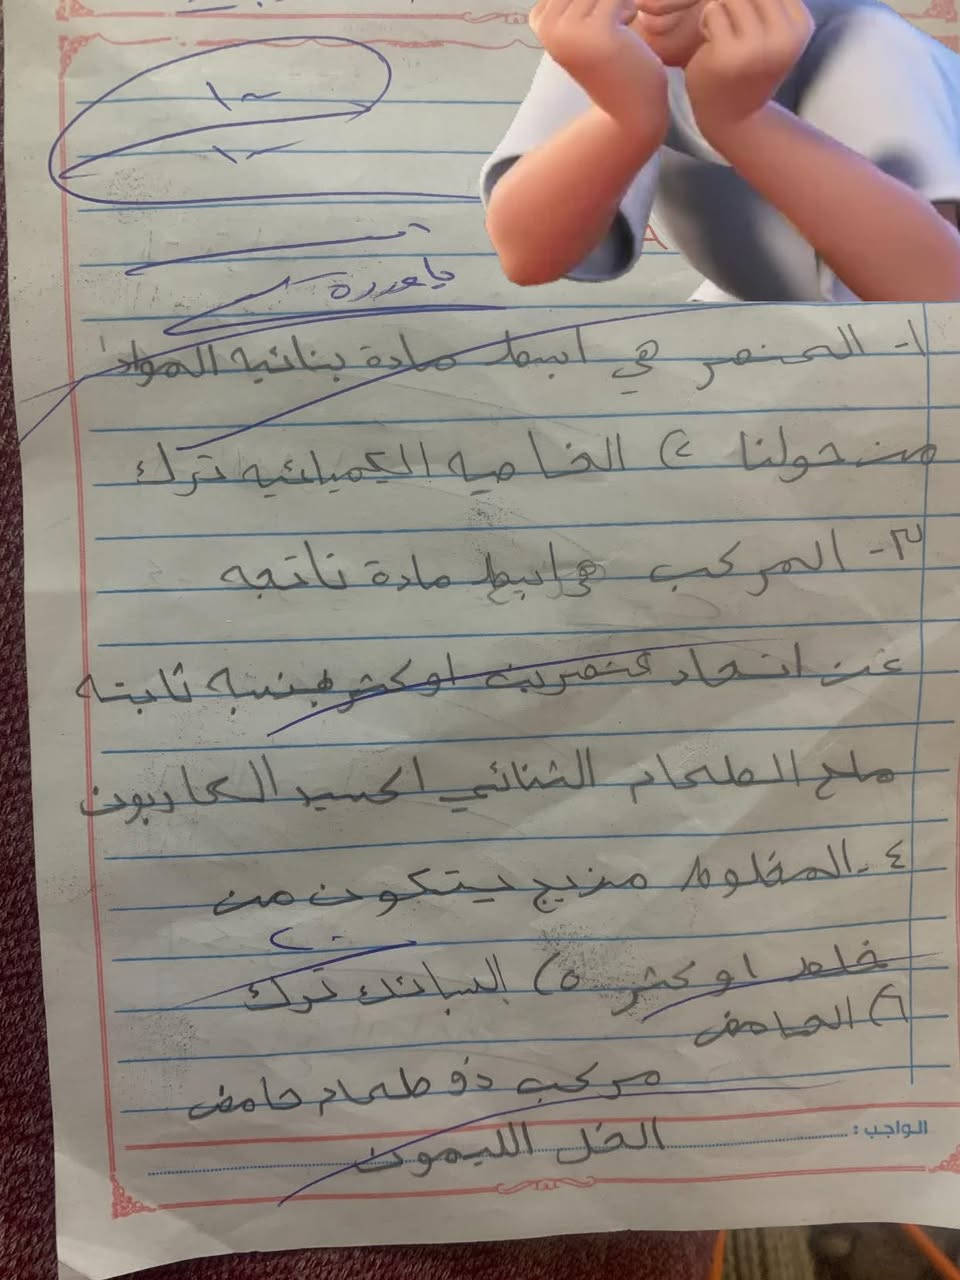 ١٠
١٠
ياوردة
١- العنصر هي ابسط مادة بنائيه المواد
من حولنا ٢) الخاصيه الكميائيه ترك
٣- المركب هي ابسط مادة ناتجه
عن اتحاد عنصرين او كثر بنسبه ثابته
ملح الطعام الثنائي اكسيد الكاربون
٤- المخلوط مزيج يتكون من
خلط او كثر ٥) السبائك ترك
٦) الحامض
مركب ذو طعام حامض
الخل الليمون
الواجب: